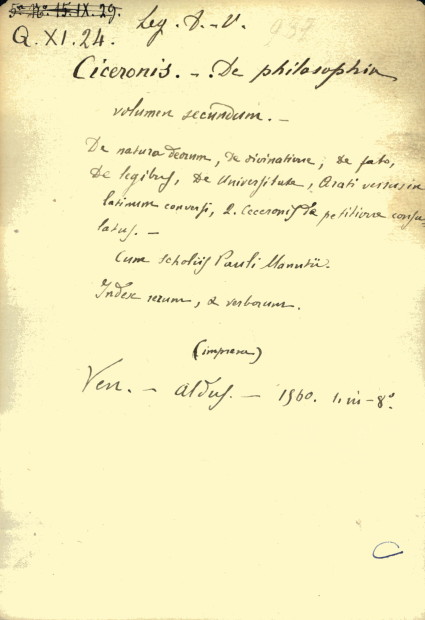 5ª Nº 15.IX.29.
Q. XI. 24.
Leg. A. - V.
937
Ciceronis. - De philosophia
volumen secundum. -
De natura deorum, de divinatione, de fato,
De legibus, De Universitate, Arati versus in
latinum conversi, Q. Ciceronis de petitione consu-
latus. -
Cum scholiis Pauli Manutii.
Index rerum, & verborum.
(impresa)
Ven. - Aldus. - 1560. - 8º
C